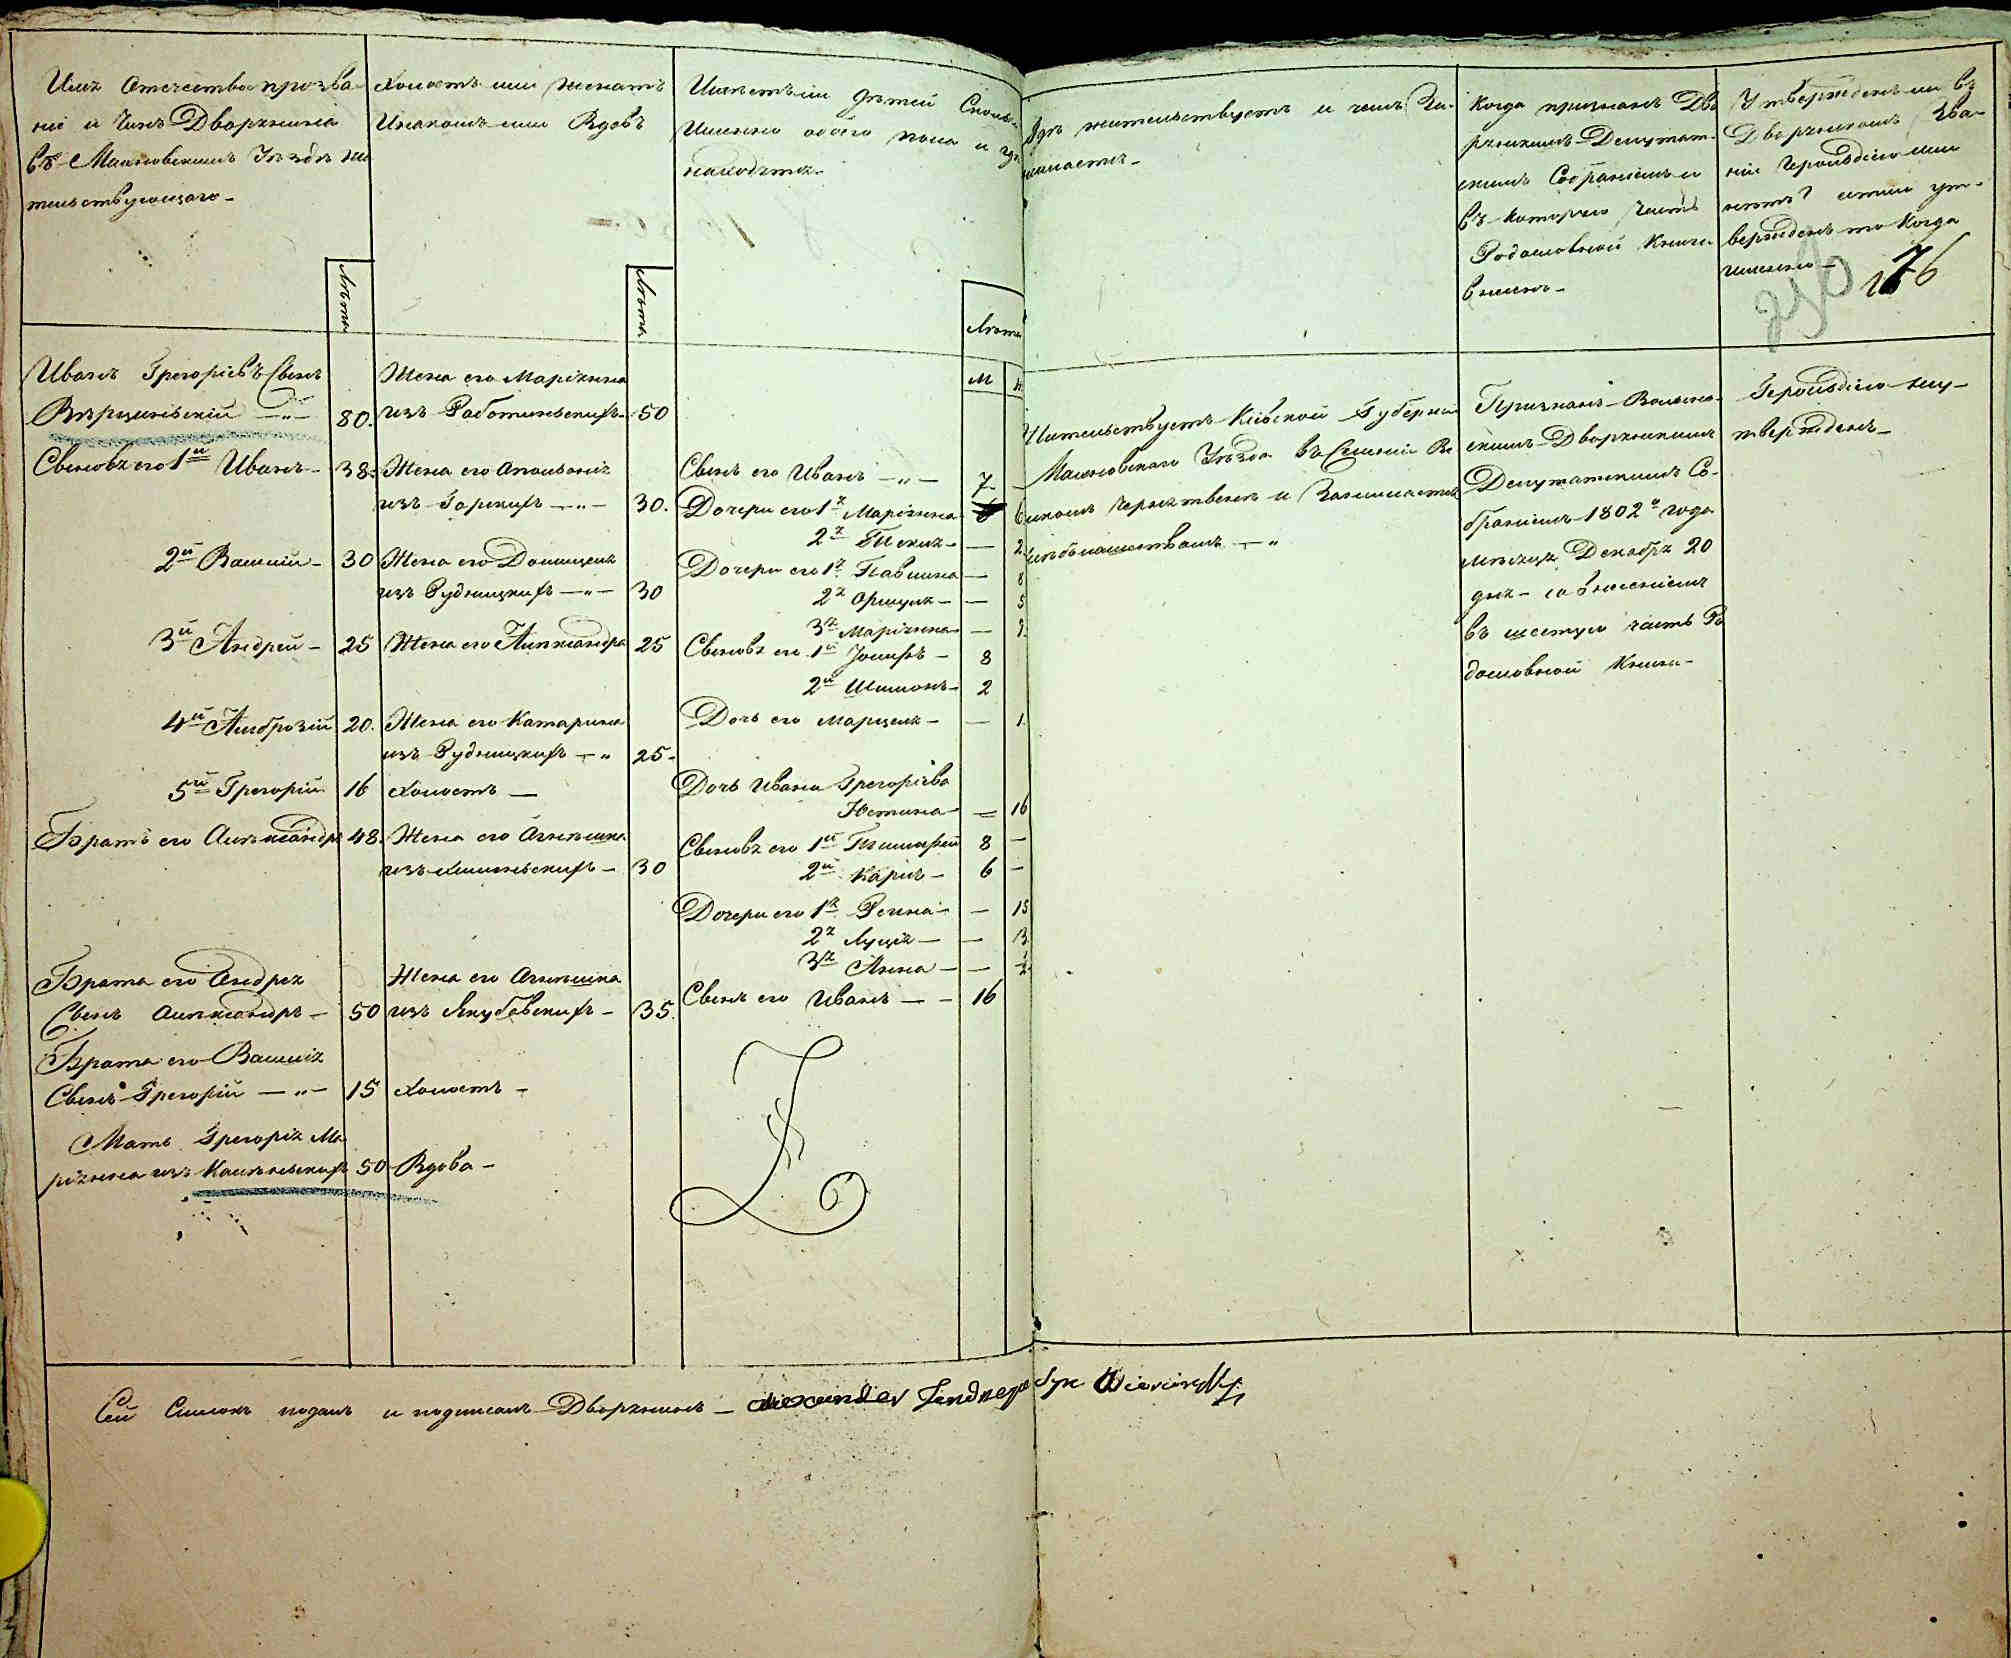 Имя Отечество прозва-
ніе и Чинъ Дворянина
въ Махновскомъ Уѣздѣ жи-
тельствующаго-
Лѣта
Холостъ или женатъ
И на комъ или Вдовъ
Лѣта
Имѣетъ ли Дѣтей Сколько
Именно обоего пола и гдѣ
находятся-
Лѣта
М
Гдѣ жительствуетъ и чемъ За-
нимается-
Когда признанъ Дво
рянскимъ Депутат-
скимъ Собраніемъ и
въ которую часть
Родословной Книги
внесенъ-
Утвержденъ ли въ
Дворянскомъ Зва-
ніи Герольдіею или
нетъ? естли ут-
вержденъ то когда
именно-
Иванъ Грегоріевъ Сынъ
80.
Жена его Маріянна
изъ 50
Сыновья его 1й Иванъ- 38.
Жена его Аполонія
изъ Горскихъ 30.
Сынъ его Иванъ 7 -
Дочери его 1я Маріянна 6
2я Текля - 2
2й Василій- 30
Жена его Домицеля
изъ Рудницкихъ 30
Дочери его 1я Павлина - 8
2я - 5
3я Маріянна -
3й Андрей- 25
Жена его Александра 25
Сыновья его 1й Іосифъ- 8
2й Шимонъ- 2
4й Амброзій 20.
Жена его Катарина
изъ Рудницкихъ 25-
Дочь его Марцеля- - 1
5й Грегорій 16
Холостъ -
Дочь Ивана Грегоріева
Юстина- - 16
Братъ его Александръ 48.
Жена его Агнѣшка
изъ 30
Сыновья его 1й Тимофей 8 -
2й Карлъ- 6 -
Дочери его 1я - 15
2я Луція- - 3
3я Анна- - 1/2
Брата его Андрея
Сынъ Александръ- 50
Жена его Агнѣшка
изъ Якубовскихъ- 35.
Сынъ его Иванъ - - 16
Брата его Василія
Сынъ Грегорій 15
Холостъ-
Мать Грегорія Ма
ріянна изъ 50
Вдова-
Жительствуетъ Кіевской Губерніи
Махновскаго Уѣзда въ Селеніи
и Занимается
Хлѣбопашествомъ
Признанъ Волын-
скимъ Дворянскимъ
Депутатскимъ Со-
браніемъ 1802го года
мѣсяца Декабря 20
дня- со внесеніемъ
въ шестую часть Ро
дословной Книги-
Герольдіею неу-
твержденъ-
Сей Списокъ подалъ и подписалъ Дворянинъ- Alexander Jendrzeja Syn